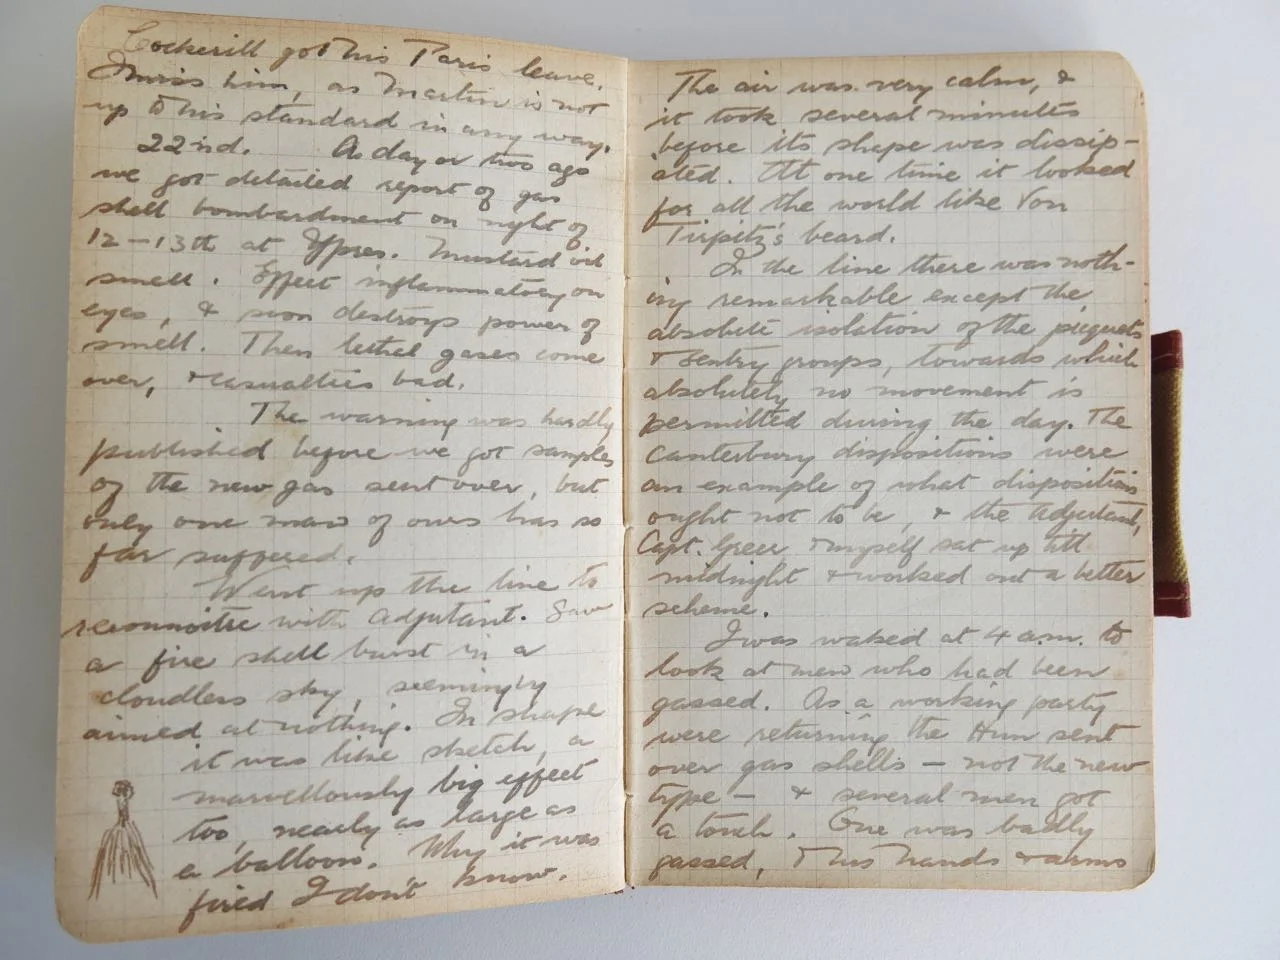 Cockerill got his Paris leave.
I miss him, as Martin is not
up to his standard in any way.
22nd. A day or two ago
we got detailed report of gas
shell bombardment on night of
12-13th at Ypres. Mustard oil
smell. Effect inflammatory on
eyes, & soon destroys power of
smell. Then lethal gases come
over, & casualties bad.
The warning was hardly
published before we got samples
of the new gas sent over, but
only one man of ours has so
far suffered.
Went up the line to
reconnoitre with adjutant. Saw
a fire shell burst in a
cloudless sky, seemingly
aimed at nothing. In shape
it was like sketch, a
marvellously big effect
too, nearly as large as
a balloon. Why it was
fired I don't know.
The air was very calm, &
it took several minutes
before its shape was dissip-
ated. At one time it looked
for all the world like Von
Tirpitz's beard.
In the line there was noth-
ing remarkable except the
absolute isolation of the picquets
& sentry groups, towards which
absolutely no movement is
permitted during the day. The
Canterbury dispositions were
an example of what dispositions
ought not to be, & the adjutant,
Capt. Greer & myself sat up till
midnight & worked out a better
scheme.
I was waked at 4 a.m. to
look at men who had been
gassed. As a working party
were returning the Hun sent
over gas shells — not the new
type — & several men got
a touch. One was badly
gassed, & his hands & arms